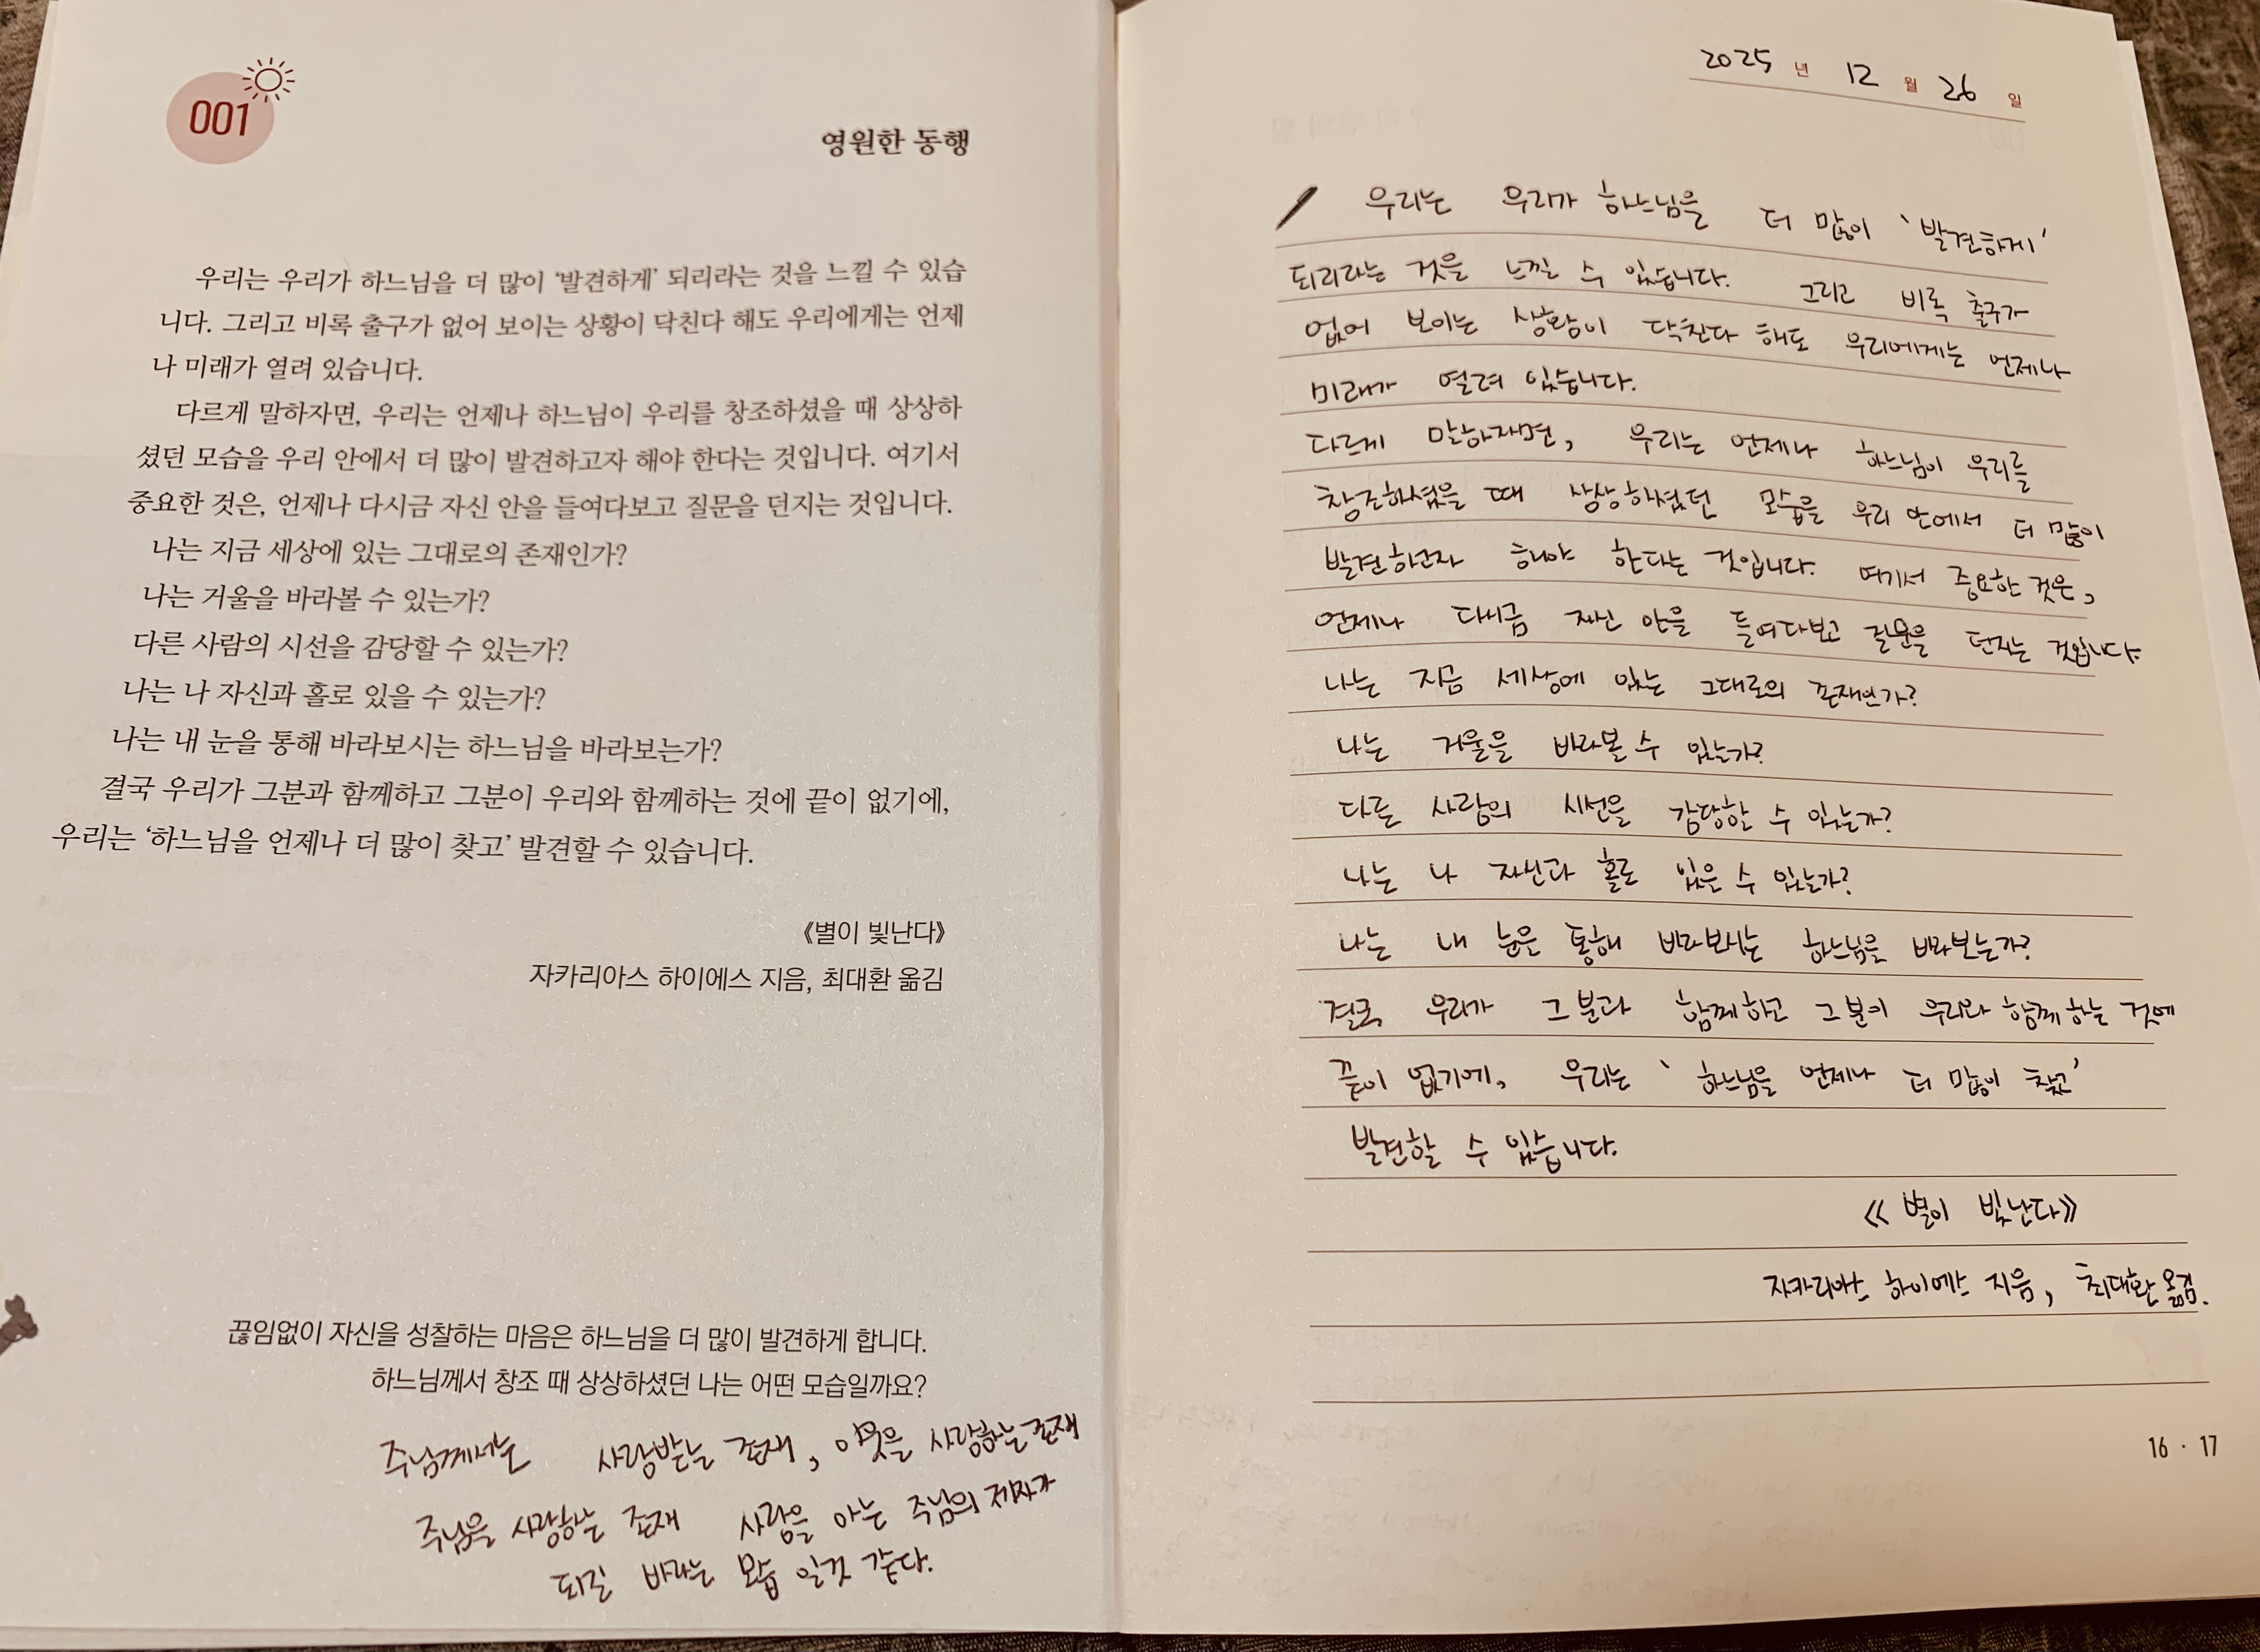 001
영원한 동행
우리는 우리가 하느님을 더 많이 ‘발견하게’ 되리라는 것을 느낄 수 있습
니다. 그리고 비록 출구가 없어 보이는 상황이 닥친다 해도 우리에게는 언제
나 미래가 열려 있습니다.
다르게 말하자면, 우리는 언제나 하느님이 우리를 창조하셨을 때 상상하
셨던 모습을 우리 안에서 더 많이 발견하고자 해야 한다는 것입니다. 여기서
중요한 것은, 언제나 다시금 자신 안을 들여다보고 질문을 던지는 것입니다.
나는 지금 세상에 있는 그대로의 존재인가?
나는 거울을 바라볼 수 있는가?
다른 사람의 시선을 감당할 수 있는가?
나는 나 자신과 홀로 있을 수 있는가?
나는 내 눈을 통해 바라보시는 하느님을 바라보는가?
결국 우리가 그분과 함께하고 그분이 우리와 함께하는 것에 끝이 없기에,
우리는 ‘하느님을 언제나 더 많이 찾고’ 발견할 수 있습니다.
《별이 빛난다》
자카리아스 하이에스 지음, 최대환 옮김
끊임없이 자신을 성찰하는 마음은 하느님을 더 많이 발견하게 합니다.
하느님께서 창조 때 상상하셨던 나는 어떤 모습일까요?
주님께서는 사랑받는 존재, 이웃을 사랑하는 존재
주님을 사랑하는 존재 사랑을 아는 주님의 제자가
되길 바라는 모습 일것 같다.
2025 년 12 월 26 일
우리는 우리가 하느님을 더 많이 ‘발견하게’
되리라는 것을 느낄 수 있습니다. 그리고 비록 출구가
없어 보이는 상황이 닥친다 해도 우리에게는 언제나
미래가 열려 있습니다.
다르게 말하자면, 우리는 언제나 하느님이 우리를
창조하셨을 때 상상하셨던 모습을 우리 안에서 더 많이
발견하고자 해야 한다는 것입니다. 여기서 중요한 것은,
언제나 다시금 자신 안을 들여다보고 질문을 던지는 것입니다.
나는 지금 세상에 있는 그대로의 존재인가?
나는 거울을 바라볼 수 있는가?
다른 사람의 시선을 감당할 수 있는가?
나는 나 자신과 홀로 있을 수 있는가?
나는 내 눈을 통해 바라보시는 하느님을 바라보는가?
결국 우리가 그분과 함께하고 그분이 우리와 함께하는 것에
끝이 없기에, 우리는 ‘하느님을 언제나 더 많이 찾고’
발견할 수 있습니다.
《별이 빛난다》
자카리아스 하이에스 지음, 최대환 옮김.
16 · 17